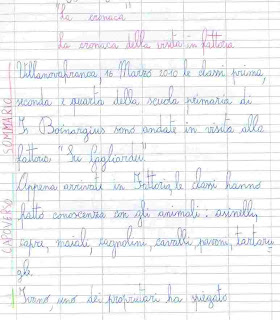 "La cronaca"
La cronaca della visita in fattoria
SOMMARIO
Villanovafranca, 16 Marzo 2010 le classi prima,
seconda e quarta della scuola primaria di
Is Boinargius sono andate in visita alla
fattoria "Su Gagliardu".
CAPOVERSO
Appena arrivati in fattoria, le classi hanno
fatto conoscenza con gli animali: asinelli,
capre, maiali, cagnolini, cavalli, pavoni, tartaru
ghe.
uno dei proprietari ha spiegato